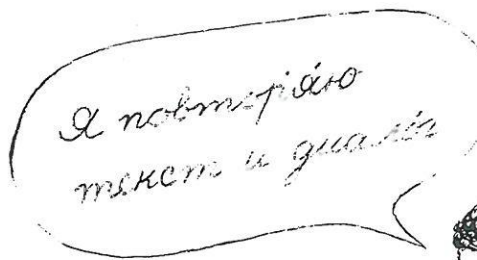 Я повторя́ю
текст и диало́г